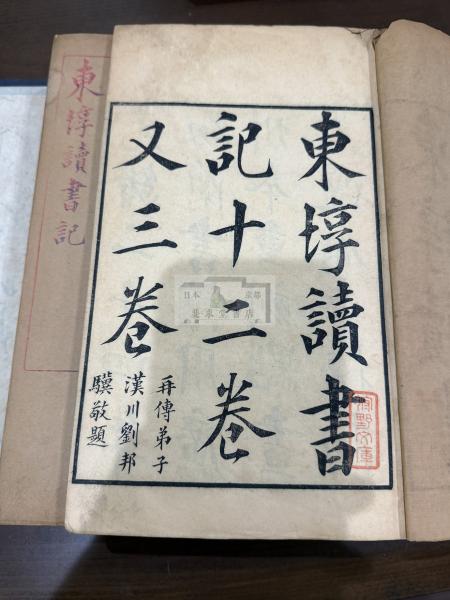 東塾讀書
記十二卷
又三卷
再傳弟子
漢川劉邦
驥敬題
東塾讀書記
日本 京都
書店
文庫